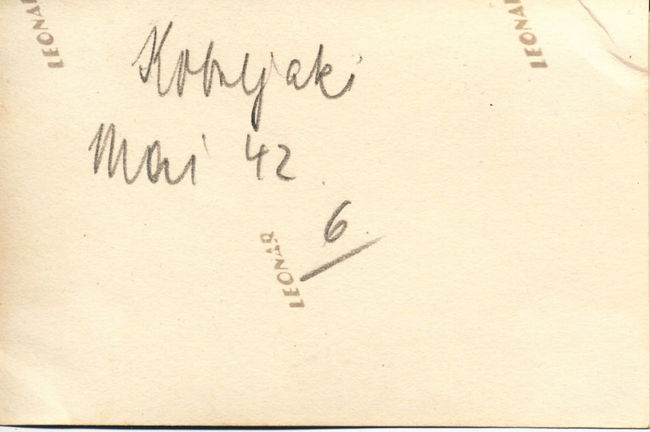 LEONAR
LEONAR
Kobeljaki
Mai 42
6
LEONAR